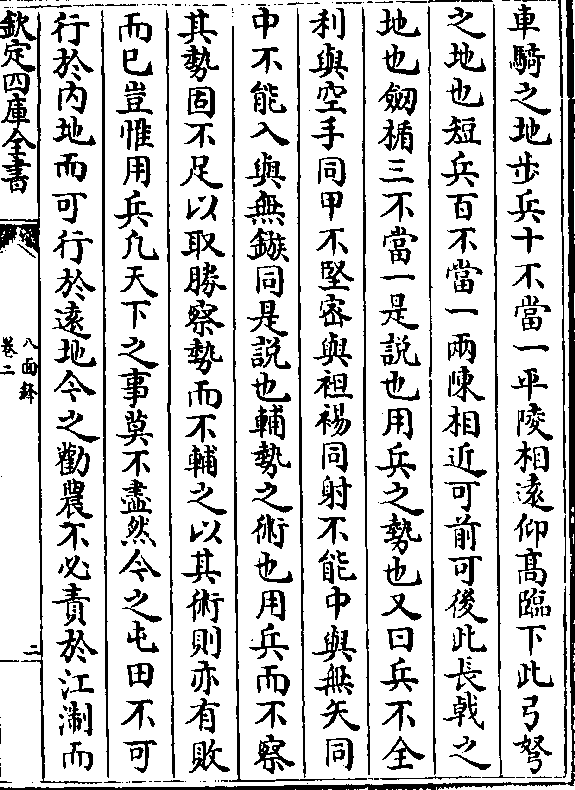 車騎之地步兵十不當一平陵相遠仰髙臨下此弓弩
之地也短兵百不當一兩陳相近可前可後此長戟之
地也劔楯三不當一是説也用兵之勢也又曰兵不全
利與空手同甲不堅密與袒裼同射不能中與無矢同
中不能入與無鏃同是説也輔勢之術也用兵而不察
其勢固不足以取勝察勢而不輔之以其術則亦有敗
而已豈惟用兵凡天下之事莫不盡然今之屯田不可
行於内地而可行於逺地今之勸農不必責於江淛而
欽定四庫全書
八面鋒
卷二
二